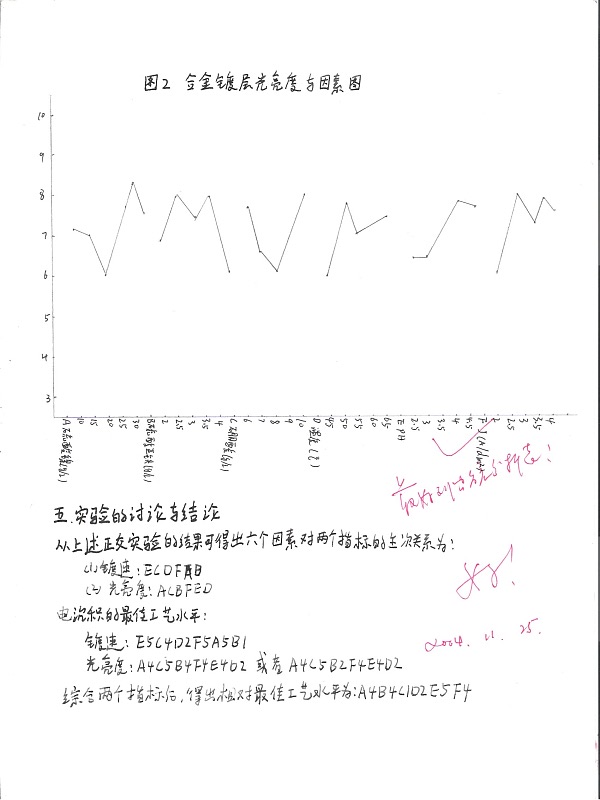 图2 合金镀层光亮度与因素图
10
9
8
7
6
5
4
3
10 15 20 25 30 2 2.5 3 3.5 4 6 7 8 9 10 45 50 55 60 65 E PH 2.5 3 3.5 4 4.5 2 2.5 3 3.5 4
五.实验的讨论与结论
从上述正交实验的结果可得出六个因素对两个指标的主次关系为:
(1)镀速:ECDFAB
(2)光亮度:ACBFED
电沉积的最佳工艺水平:
镀速:E5C4D2F5A5B1
光亮度:A4C5B4F4E4D2 或者 A4C5B2F4E4D2
综合两个指标后,得出相对最佳工艺水平为:A4B4C1D2E5F4
2004.11.25.